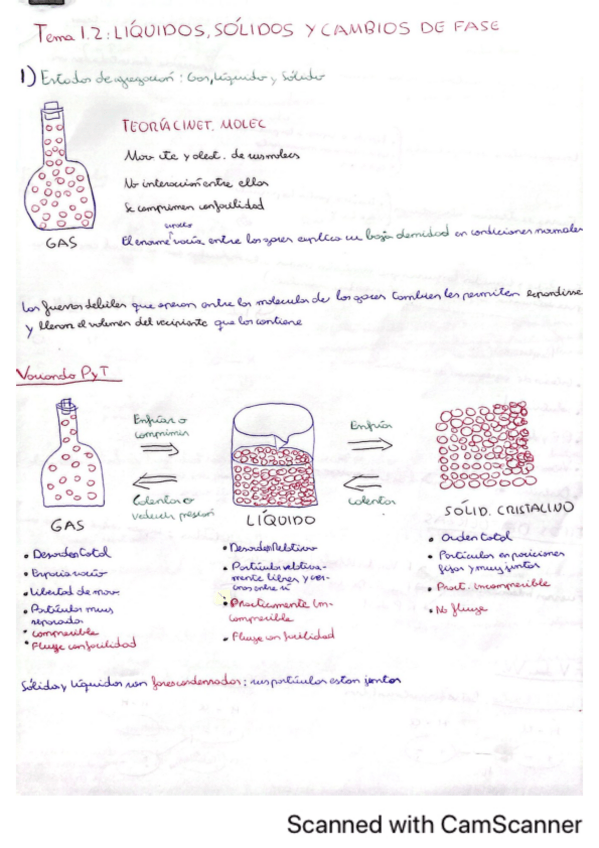 Tema 1.2: LÍQUIDOS, SÓLIDOS Y CAMBIOS DE FASE
1) Estados de agregación: Gas, Líquido y Sólido
TEORÍA CINET. MOLEC
Mov. cte y aleat. de sus molecs
No interacción entre ellas
Se comprimen con facilidad
GAS
El enorme vacío entre los gases explica su baja densidad en condiciones normales
Las fuerzas débiles que operan entre las moleculas de los gases tambien les permiten expandirse
y llenar el volumen del recipiente que los contiene
Variando P y T
Enfriar o
comprimir
Enfriar
Calentar o
reducir presión
Calentar
GAS
LÍQUIDO
SÓLID. CRISTALINO
• Desorden total
• Espacio vacío
• Libertad de mov
• Partículas muy
separadas
• compresible
• Fluye con facilidad
• Desorden Relativo
• Partículas relativa-
mente libres y cer-
canas entre sí
• Practicamente In-
compresible
• Fluye con facilidad
• Orden total
• Partículas en posiciones
fijas y muy juntas
• Pract. incompresible
• No fluye
Sólidos y líquidos son fases condensadas: sus partículas estan juntas
Scanned with CamScanner